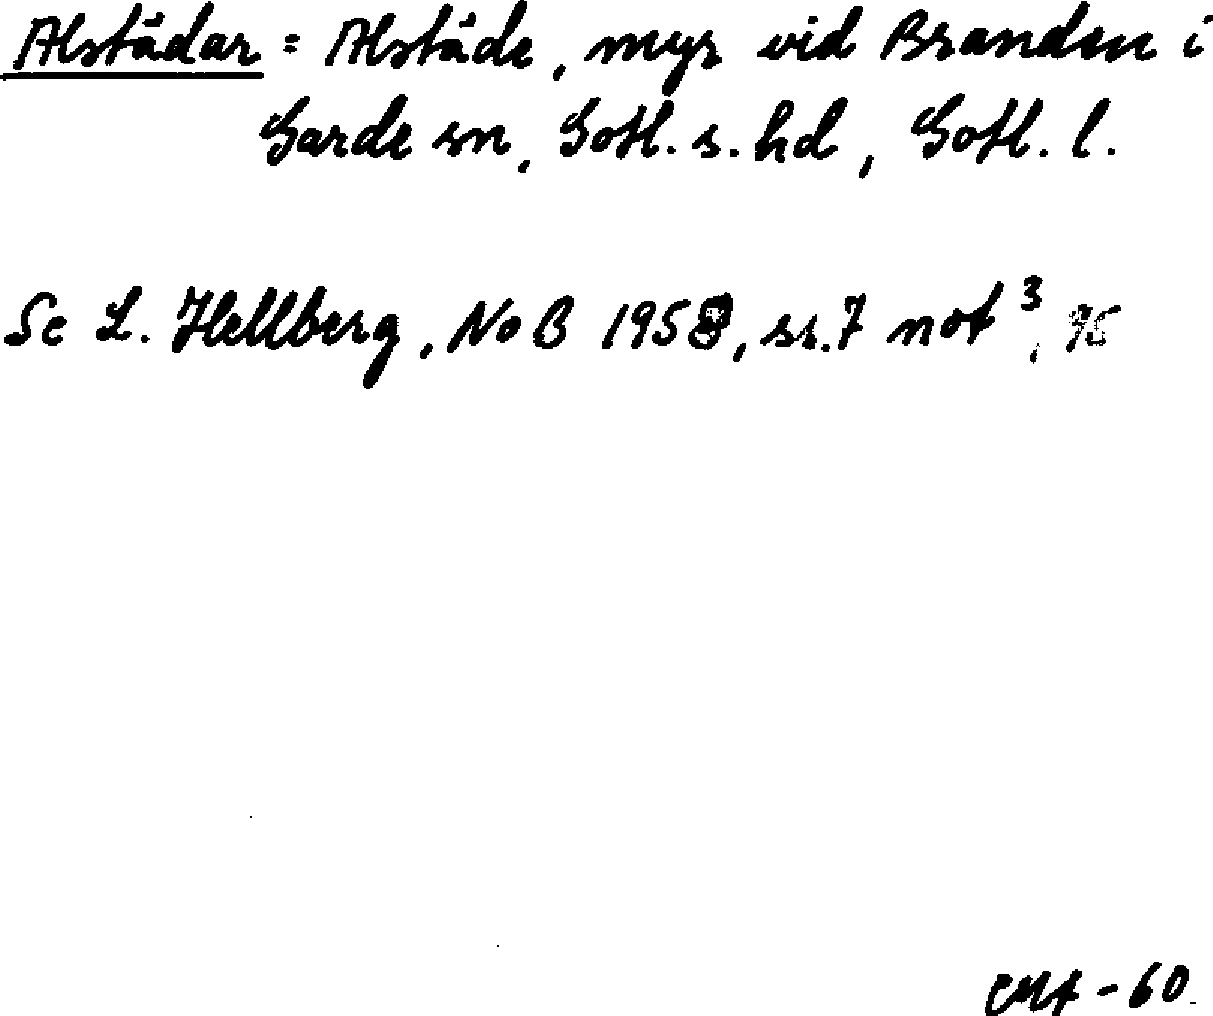 Alstädar = Alstäde, myr vid Branden i
Garde sn, Gotl. s. hd, Gotl. l.
Se L. Hellberg, NoB 1958, ss. 7 not 3, 95
-60